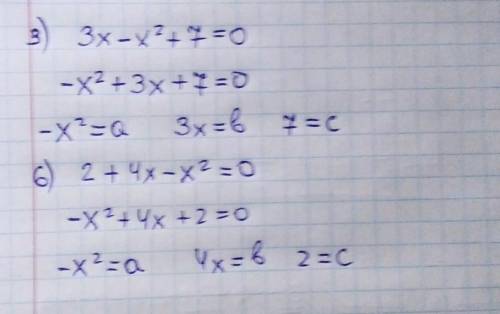 3) 3x-x²+7=0
-x²+3x+7=0
-x²=a 3x=в 7=c
6) 2+4x-x²=0
-x²+4x+2=0
-x²=a 4x=в 2=c